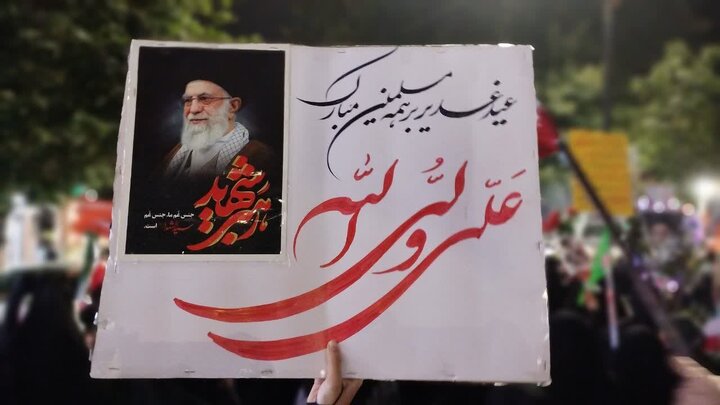 عید غدیر بر همه مسلمین مبارک
علی ولی الله
رهبر شهید
جنس غم ما، جنس غم
سیدالشهدا است.